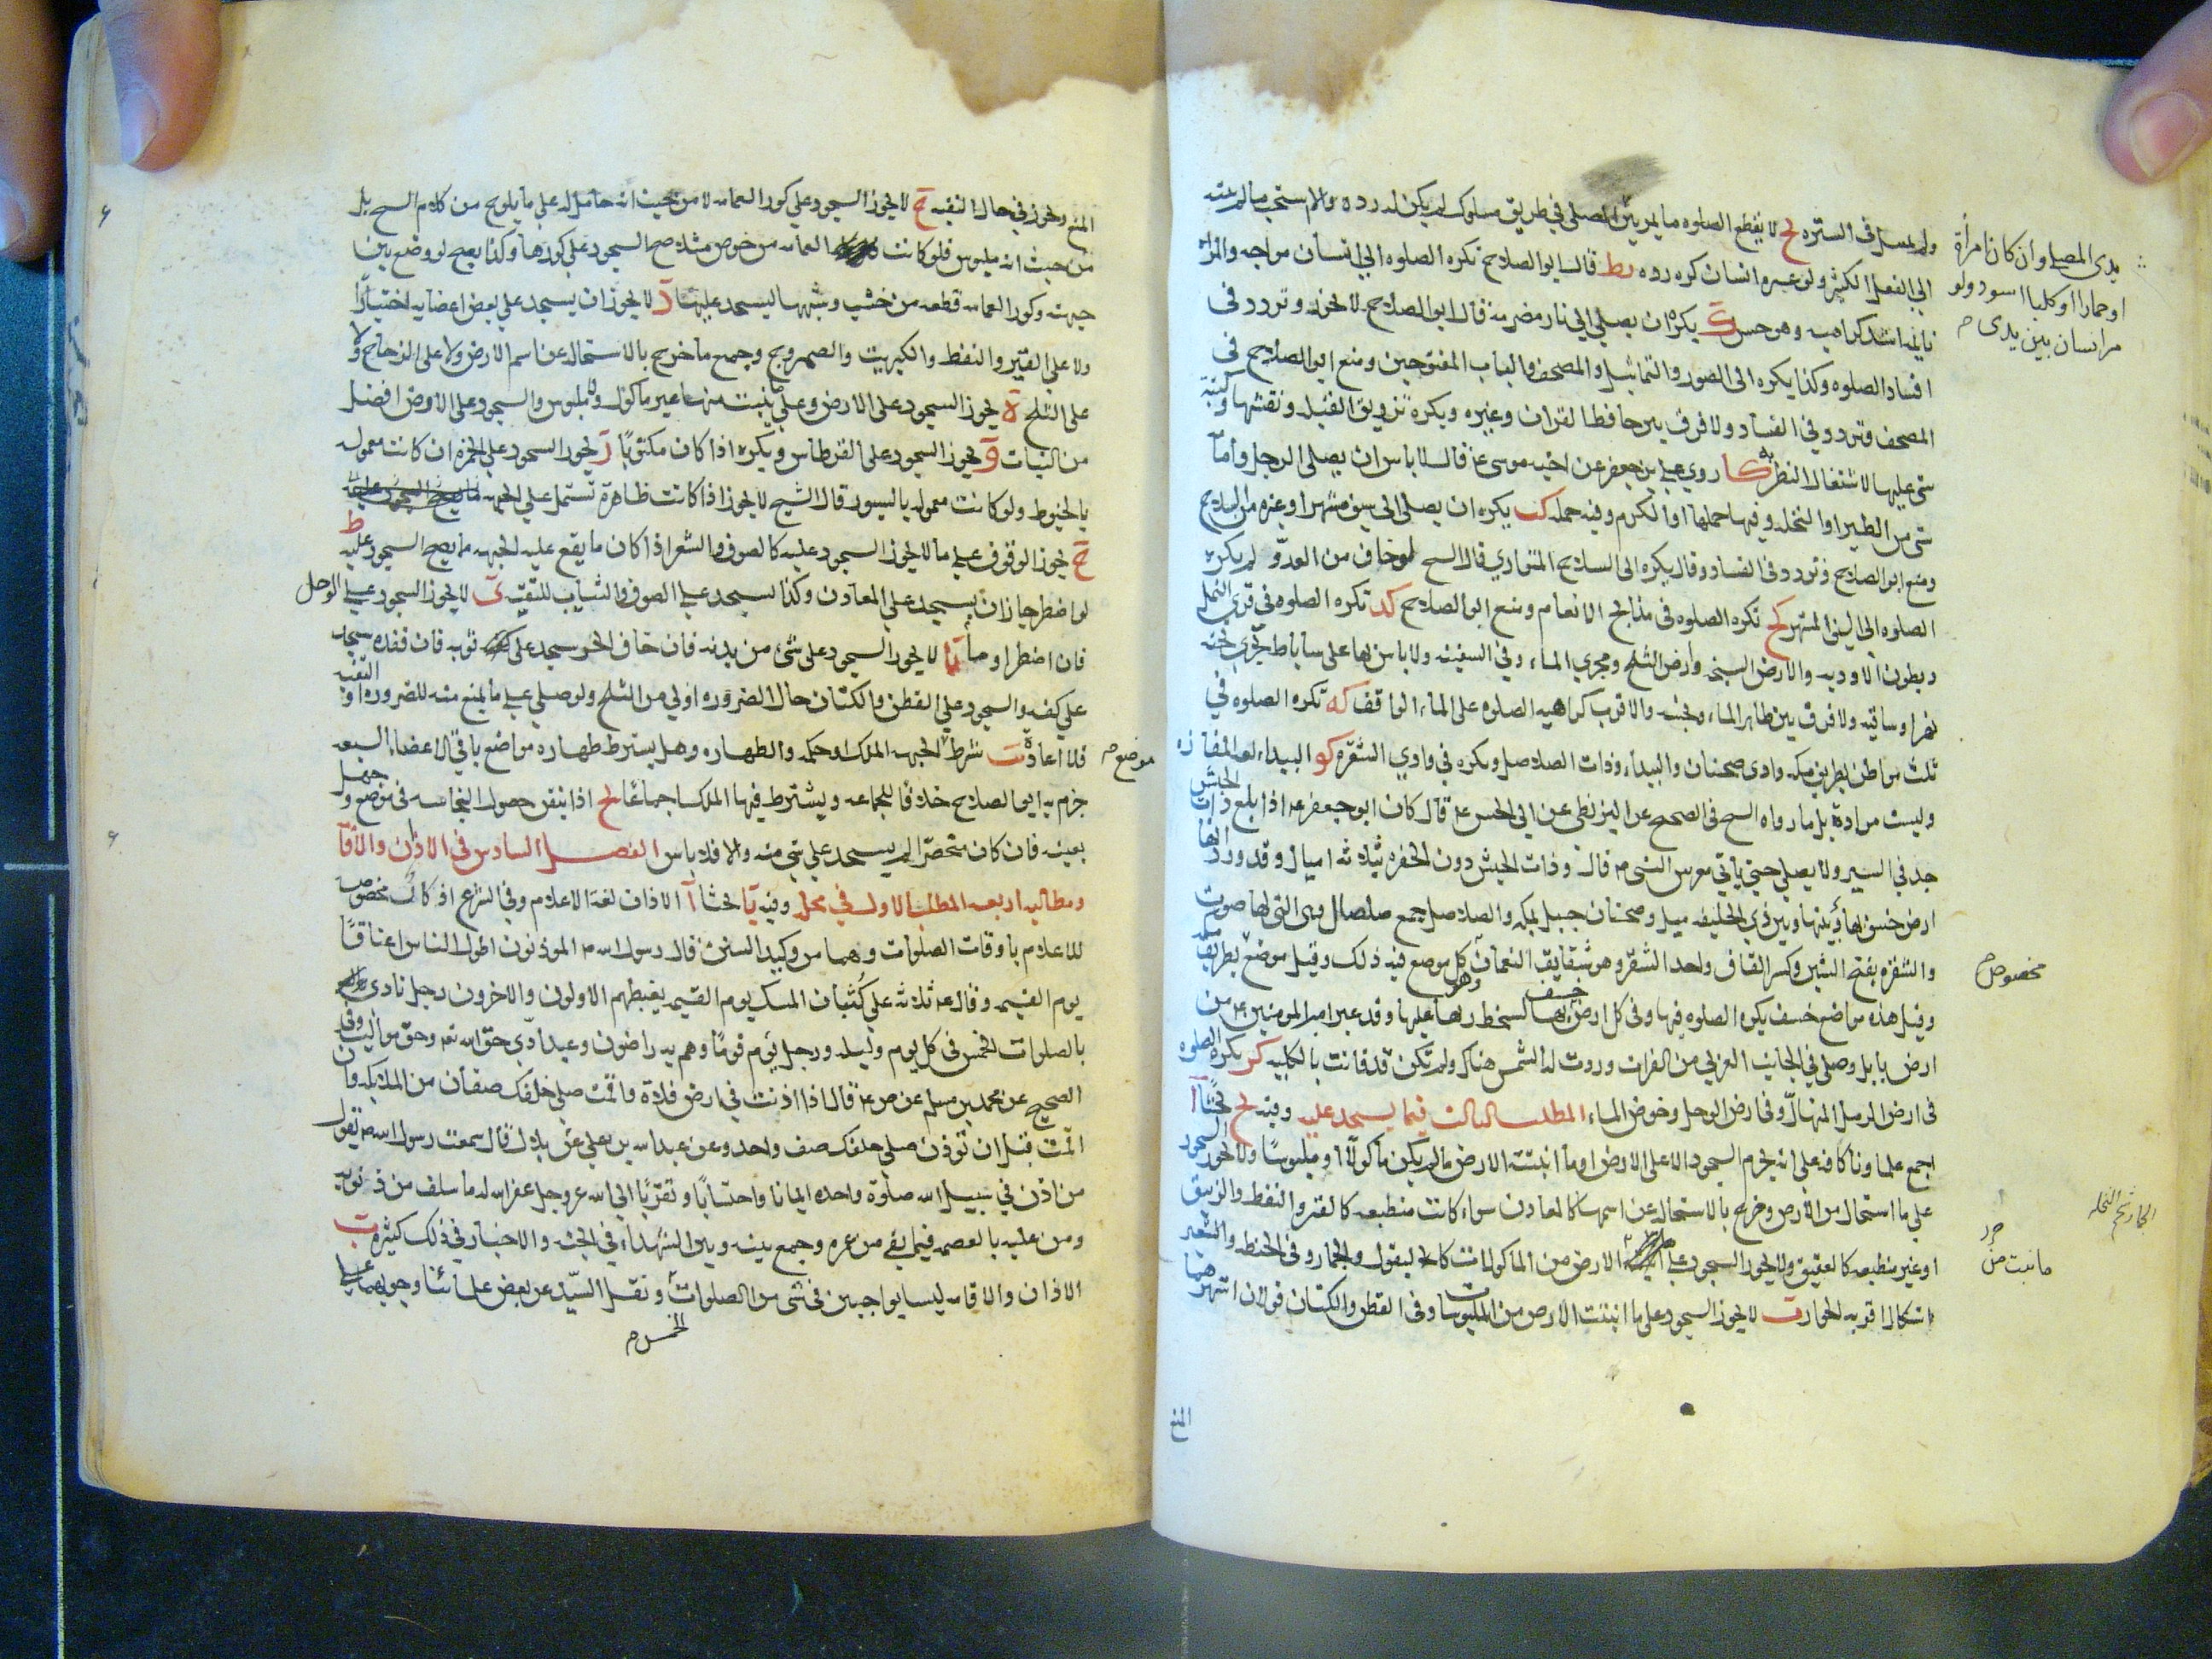 ولم يصل في السترة لح لا يقطع الصلوه ما يمر بين المصلي في طريق مسلوك لم يكن له رده والا استحب ما لم ينته
الى الفعل الكثير ولو عبره انسان كره رده يط قال ابو الصلاح تكره الصلوه الى انسان مواجه والمراة
نايمه اشد كراهيه وهو حسن ك يكره ان يصلي الى نار مضرمة قال ابو الصلاح لا يجوز وتردد في
افساد الصلوه وكذا يكره الى الصور والتماثيل والمصحف والباب المفتوحين ومنع ابو الصلاح في
المصحف وتردد في الفساد ولا فرق بين حافظ القران وغيره ويكره تزويق القبلة ونقشها وكتبة
شي عليها لاشتغال النظر كا روي علي بن جعفر عن اخيه موسى ع قال لا باس ان يصلي الرجل وامامه
شي من الطير او النخلة وفيها حملها او الكرم وفيه حمله كب يكره ان يصلي الى سيف مشهر او غيره من السلاح
ومنع ابو الصلاح وتردد في الفساد وقال يكره الى السلاح المتواري قال الشيخ لو خاف من العدو لم يكره
الصلوه الى السيف المشهر كج تكره الصلوه في مذابح الانعام ومنع ابو الصلاح كد تكره الصلوه في قرى النمل
وبطون الاوديه والارض السبخه وارض الثلج ومجرى الماء وفي السفينه ولا باس بها على ساباط يجري تحته
نهر او ساقيه ولا فرق بين طاهر الماء ونجسه والاقرب كراهيه الصلوه على الماء الواقف كه تكره الصلوه في
ثلث مواطن بطريق مكه وادي ضجنان والبيداء وذات الصلاصل ويكره في وادي الشقره كو البيداء لغه المفازه
وليست مراده بل ما رواه الشيخ في الصحيح عن البزنطي عن ابي الحسن ع قال كان ابو جعفر ع اذا بلغ ذات الجيش
جد في السير ولا يصلي حتى ياتي معرس النبي ص قال وذات الجيش دون الحفره بثلاثه اميال وقد ورد انها
ارض خسف بها وبينها وبين ذي الحليفه ميل وضجنان جبل بمكه والصلاصل جمع صلصال وهي التي لها صوت
والشقره بفتح الشين وكسر القاف واحد الشقر وهو شقايق النعمان كل موضع فيه ذلك وقيل موضع بطريق مكه
وقيل هذه مواضع خسف يكره الصلوه فيها وفي كل ارض خسف بها لسخط ربها عليها وقد عبر امير المومنين ع من
ارض بابل وصلى في الجانب الغربي من الفرات وردت له الشمس هناك ولم تكن قد فاتت بالكليه كز يكره الصلوه
في ارض الرمل المنهال وفي ارض الوحل وخوض الماء المطلب الثالث فيما يسجد عليه وفيه لح بحثا آ
اجمع علماونا كافه على انه يحرم السجود الا على الارض او ما انبتته الارض ما لم يكن ماكولا او ملبوسا ولا يجوز السجود
على ما استحال من الارض وخرج بالاستحاله عن اسمها كالمعادن سواء كانت منطبعه كالقير والنفط والزيبق
او غير منطبعه كالعقيق ولا يجوز السجود على الارض من الماكولات كالبقول والجمار وفي الحنطه والشعير
اشكال اقربه الجواز ب لا يجوز السجود على ما انبتت الارض من الملبوسات وفي القطن والكتان قولان اشهرهما
يدي المصلي وان كان امرأة
او حمارا او كلبا اسود ولو
مر انسان بين يدي ص
مخصوص
الجمار شحم النخله
ما نبت من
المنع
المنع ويجوز في حال التقيه ج لا يجوز السجود على كور العمامه لا من حيث انه حامل له على ما يلوح من كلام الشيخ بل
من حيث انه ملبوس فلو كانت العمامه من خوص مثلا صح السجود على كورها وكذا يصح لو وضع بين
جبهته وكور العمامه قطعه من خشب وشبهها ليسجد عليها د لا يجوز ان يسجد على بعض اعضايه اختيارا
ولا على القير والنفط والكبريت والصهروج وجميع ما خرج بالاستحاله عن اسم الارض ولا على الزجاج ولا
على الثلج ه يجوز السجود على الارض وعلى ما ينبت منها غير ماكول ولا ملبوس والسجود على الارض افضل
من النبات و يجوز السجود على القرطاس ويكره اذا كان مكتوبا ز يجوز السجود على الخمره ان كانت معموله
بالخيوط ولو كانت معموله بالسيور قال الشيخ لا يجوز اذا كانت ظاهرة تشتمل على الجبهه
ح يجوز الوقوف على ما لا يجوز السجود عليه كالصوف والشعر اذا كان ما يقع عليه الجبهه ما يصح السجود عليه ط
لو اضطر جاز ان يسجد على المعادن وكذا يسجد على الصوف والثياب للتقيه ى لا يجوز السجود على الوحل
فان اضطر اومأ يا لا يجوز السجود على شئ من بدنه فان خاف الحر سجد على ثوبه فان فقده سجد
على كفه والسجود على القطن والكتان حال الضروره اولى من الثلج ولو صلى على ما يمنع منه للضروره او التقيه
فلا اعاده يب شرط الجبهه الملك او حكمه والطهاره وهل يشترط طهاره مواضع باقي الاعضاء السبعه
جزم به ابو الصلاح خلافا للجماعه ويشترط فيها الملك اجماعا لح اذا تيقن حصول النجاسه في موضع وجهل
بعينه فان كان منحصرا لم يسجد على شي منه والا فلا باس الفصل السادس في الاذان والاقا
ومطالبه اربعه المطلب الاول في محله وفيه يا بحثا آ الاذان لغة الاعلام وفي الشرع اذكار مخصوص
للاعلام باوقات الصلوات وهما من وكيد السنن قال رسول الله ص الموذنون اطول الناس اعناقا
يوم القيمه وقال ع ثلاثه على كثبان المسك يوم القيمه يغبطهم الاولون والاخرون رجل نادى
بالصلوات الخمس في كل يوم وليله ورجل يؤم قوما وهم به راضون وعبد ادى حق الله تع وحق مواليه وفي
الصحيح عن محمد بن مسلم عن ص ع قال اذا اذنت في ارض فلاة واقمت صلى خلفك صفان من الملايكه وان
اقمت قبل ان توذن صلى خلفك صف واحد وعن عبد الله بن علي عن بلال قال سمعت رسول الله ص يقول
من اذن في سبيل الله صلوة واحده ايمانا واحتسابا وتقربا الى الله عز وجل غفر الله له ما سلف من ذنوبه
ومن عليه بالعصمه فيما بقي من عمره وجمع بينه وبين الشهداء في الجنه والاخبار في ذلك كثيره ب
الاذان والاقامه ليسا بواجبين في شي من الصلوات ونقل السيد عن بعض علمائنا وجوبهما على
موضع ص
الخمس ص